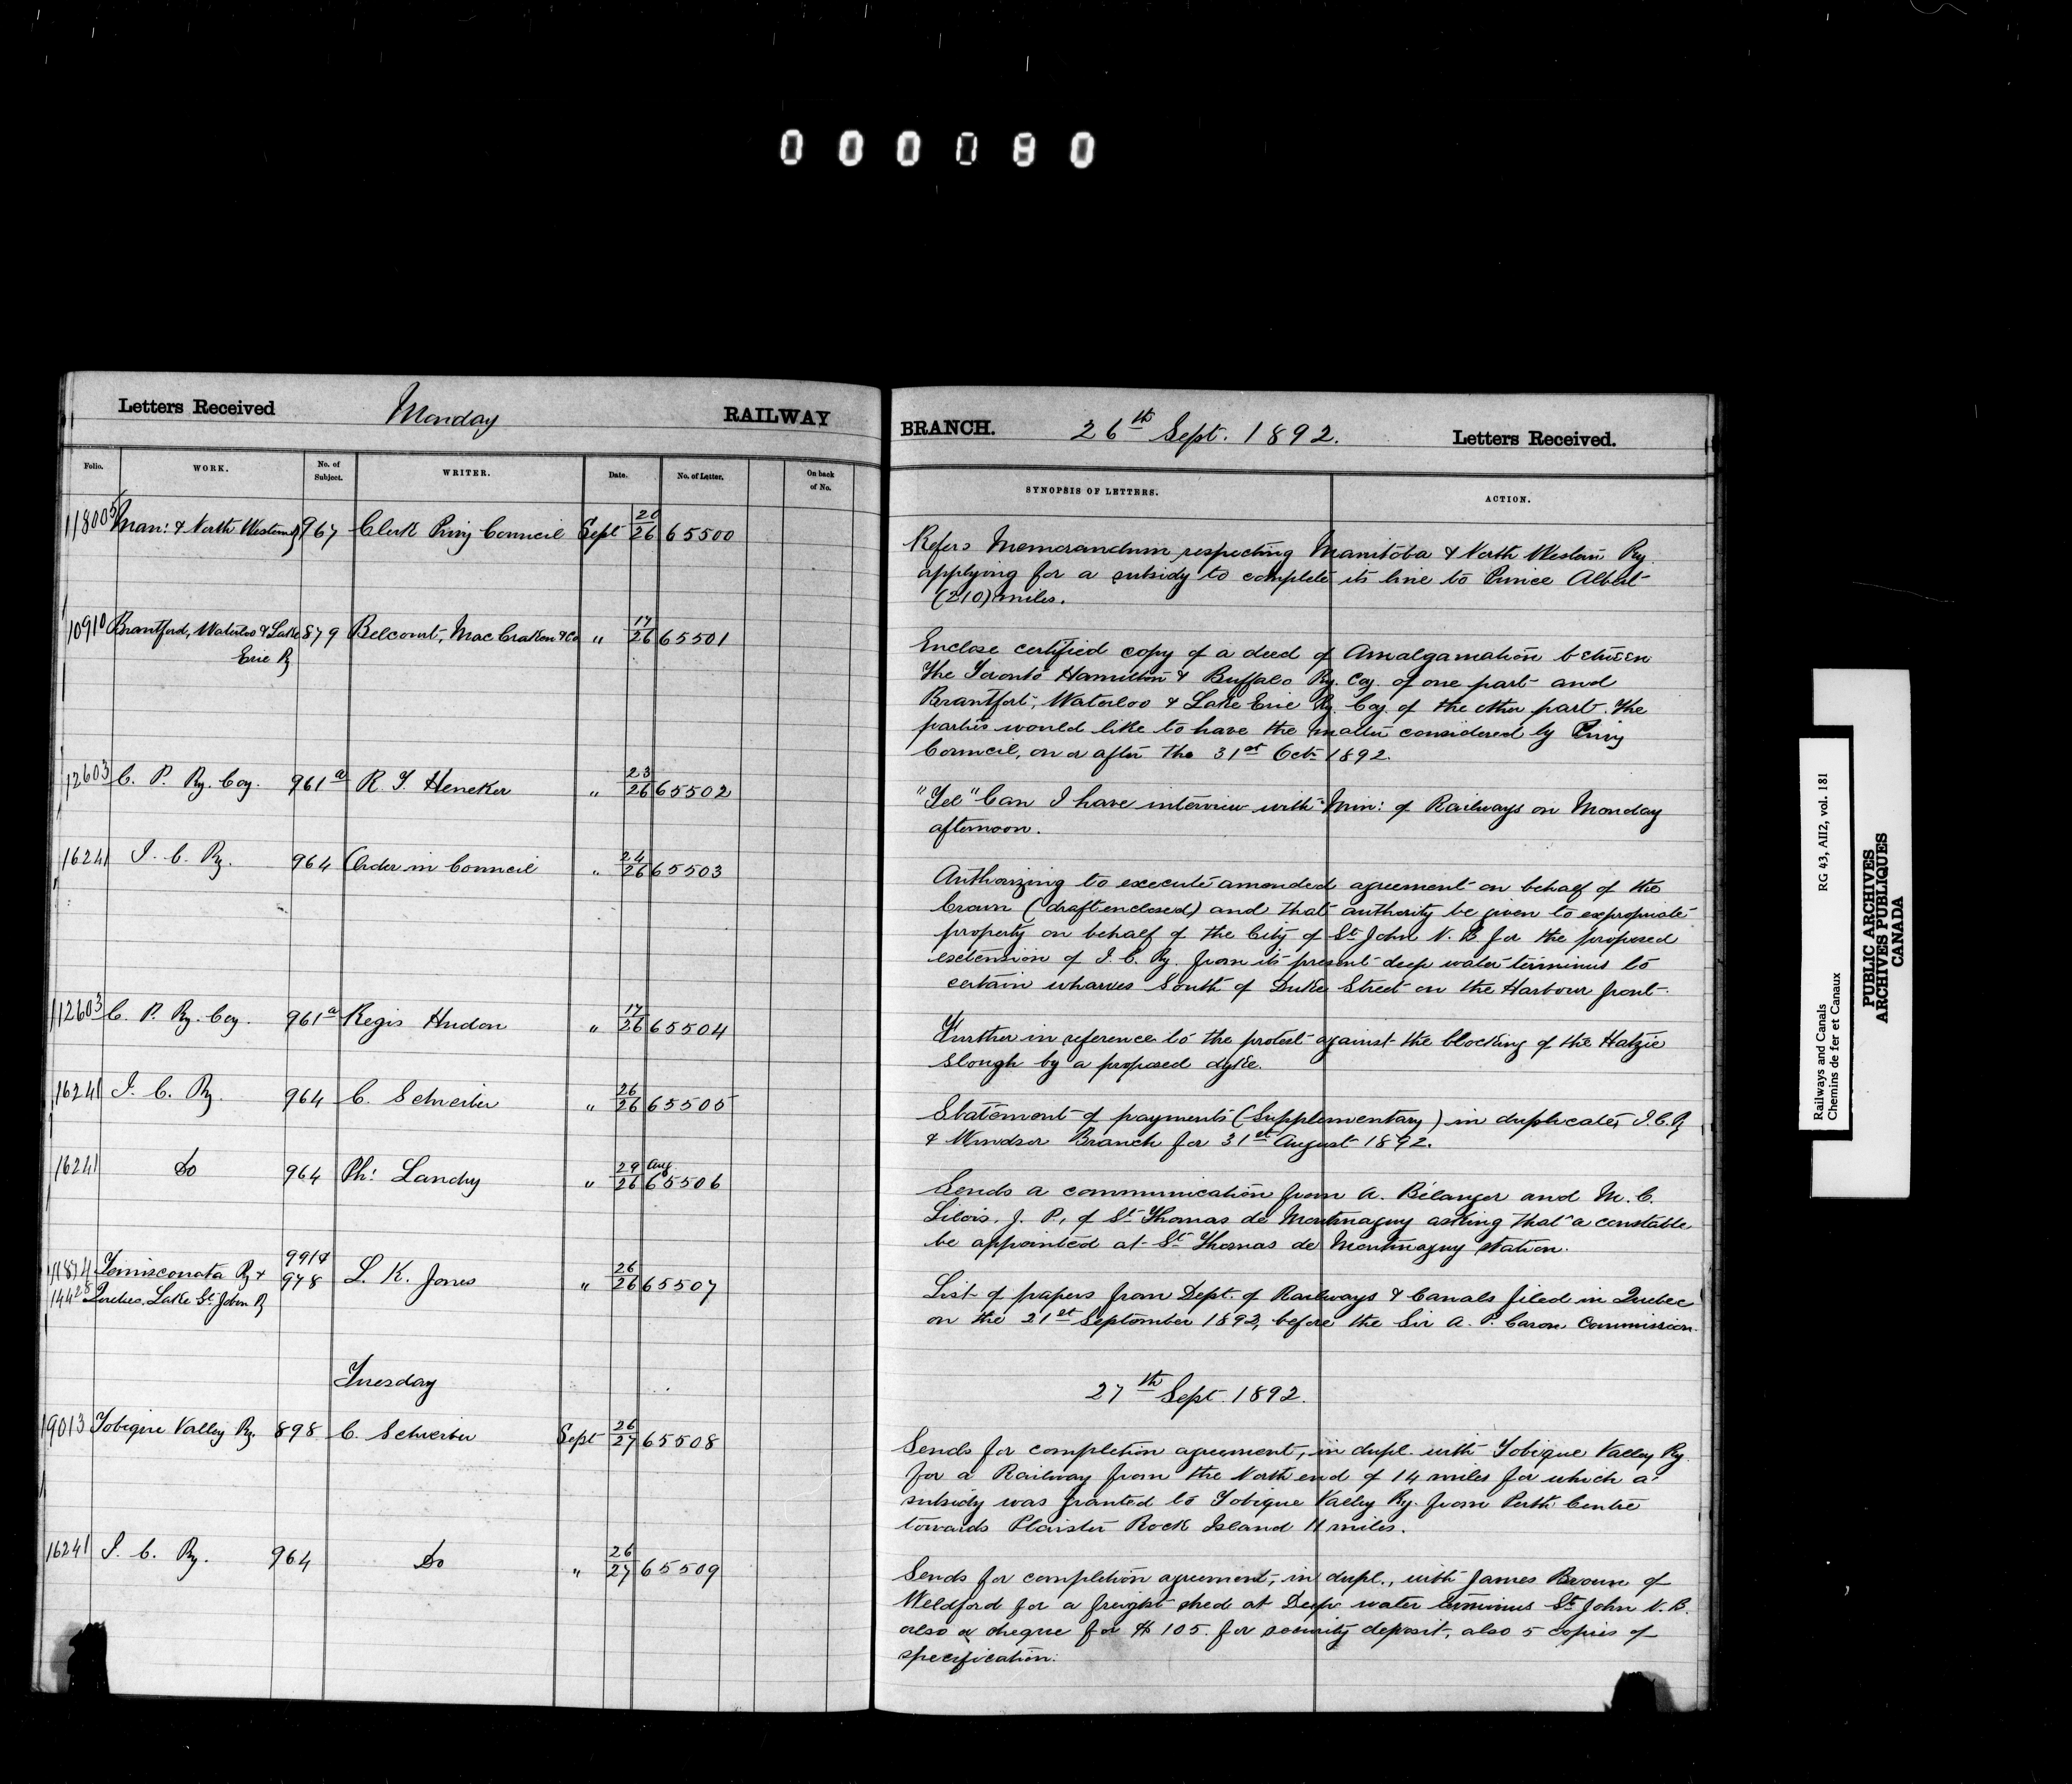 000080
Letters Received Monday RAILWAY
Folio. WORK. No. of Subject. WRITER. Date. No. of Letter. On back of No.
118005 Man: & North Western Ry 967 Clerk Privy Council Sept 20/26 65500
10910 Brantford, Waterloo & Lake 879 Belcourt, MacCraken & Co " 17/26 65501
Erie Ry
12603 C. P. Ry. Coy. 961a R. T. Heneker " 23/26 65502
16241 I. C. Ry. 964 Order in Council " 24/26 65503
112603 C. P. Ry. Coy. 961a Regis Hudon " 17/26 65504
16241 I. C. Ry. 964 C. Schreiber " 26/26 65505
16241 Do 964 Ph: Landry " 29 Aug/26 65506
11874 Temisconata Ry & 991a
14428 Quebec, Lake St. John Ry 978 L. K. Jones " 26/26 65507
Tuesday
19013 Tobique Valley Ry. 898 C. Schreiber Sept 26/27 65508
16241 I. C. Ry. 964 Do " 26/27 65509
BRANCH. 26th Sept. 1892. Letters Received.
SYNOPSIS OF LETTERS. ACTION.
Refers Memorandum respecting Manitoba & North Western Ry.
applying for a subsidy to complete its line to Prince Albert
(210) miles.
Enclose certified copy of a deed of Amalgamation between
The Toronto Hamilton & Buffalo Ry. Coy. of one part and
Brantfort, Waterloo & Lake Erie Ry. Coy. of the other part. The
parties would like to have the matter considered by Privy
Council, on or after the 31st Oct. 1892.
"Tel" Can I have interview with Min: of Railways on Monday
afternoon.
Authorizing to execute amended agreement on behalf of the
Crown (draft enclosed) and that authority be given to expropriate
property on behalf of the City of St. John N. B for the proposed
extension of I. C. Ry. from its present deep water terminus to
certain wharves South of Duke Street on the Harbour front.
Further in reference to the protest against the blocking of the Hatzic
Slough by a proposed dyke.
Statement of payments (Supplementary) in duplicate, I.C.Ry
& Windsor Branch for 31st August 1892.
Sends a communication from A. Bélanger and M. C.
Lilois, J. P., of St. Thomas de Montmagny asking that a constable
be appointed at St. Thomas de Montmagny station.
List of papers from Dept. of Railways & Canals filed in Quebec
on the 21st September 1892, before the Sir A. P. Caron Commission.
27th Sept. 1892.
Sends for completion agreement, in dupl. with Tobique Valley Ry.
for a Railway from the North end of 14 miles for which a
subsidy was granted to Tobique Valley Ry. from Perth Centre
towards Plaister Rock Island 11 miles.
Sends for completion agreement, in dupl., with James Brown of
Weldford for a freight shed at Deep water terminus St. John N. B.
also a cheque for $105. for security deposit, also 5 copies of
specification.
Railways and Canals RG 43, AII2, vol. 181
Chemins de fer et Canaux
PUBLIC ARCHIVES
ARCHIVES PUBLIQUES
CANADA